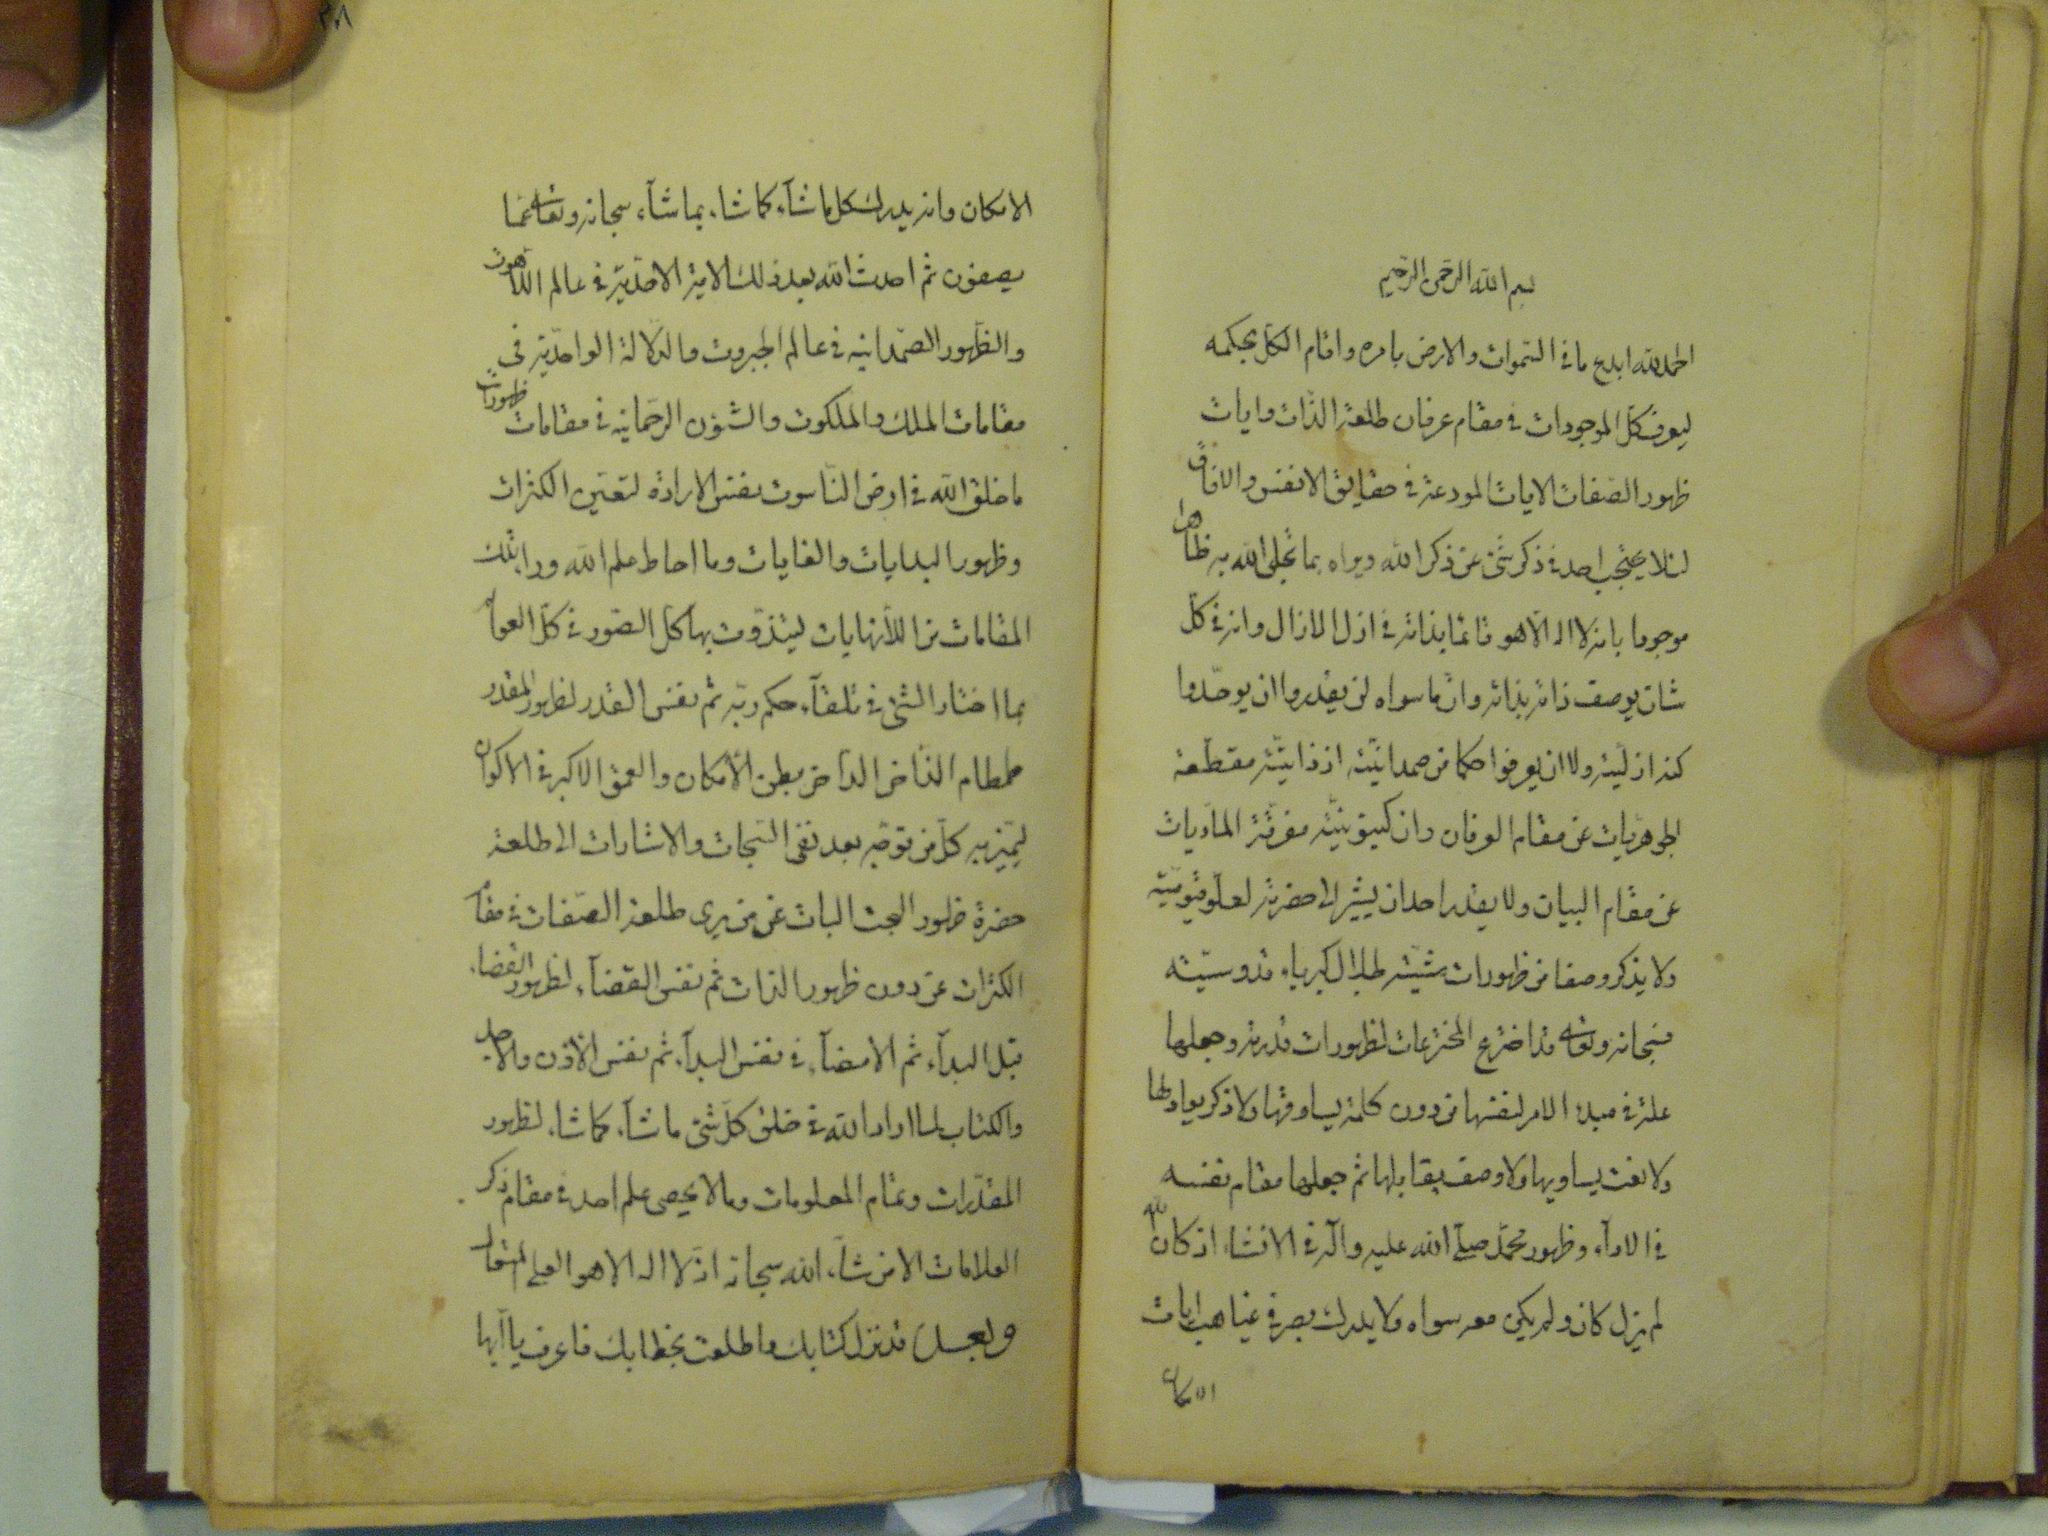 بسم الله الرحمن الرحيم
الحمد لله ابدع ما في السموات والارض بامره واقام الكل بحكمه
ليعرف كل الموجودات في مقام عرفان طلعة الذات وايات
ظهور الصفات الايات المودعة في حقايق الانفس والافاق
لئلا يحتجب احد في ذكر شئ عن ذكر الله ويراه بما تجلى الله به ظاهرا
موجودا بانه لا اله الا هو قائما بذاته في ازل الازال وانه في كل
شان يوصف ذاته بذاته وان ما سواه لن يقدروا ان يوحدوا
كنه ازليته ولا ان يعرفوا حكما من صمدانيته اذ ذاتيته مقطعة
الجوهريات عن مقام العرفان وان كينونيته مفرقة الماديات
عن مقام البيان ولا يقدر احد ان يشير الى حضرته لعلو قيوميته
ولا يذكر وصفا من ظهورات مشيته لجلال كبرياء قدوسيته
فسبحانه وتعالى قد اخترع المخترعات لظهورات قدرته وجعلها
علة في مبدء الامر لنفسها من دون كلمة يساوقها ولا ذكر يعادلها
ولا نعت يساويها ولا وصف يقابلها ثم جعلها مقام نفسه
في الاداء وظهور محمد صلى الله عليه واله في الانشاء اذ كان الله
لم يزل كان ولم يكن معه سواه ولا يدرك بصر في غياهب ايات
الامكان
الامكان وانه يدرك كل ما شاء كما شاء بما شاء سبحانه وتعالى عما
يصفون ثم احدث الله بعد ذلك الاية الاحدية في عالم اللاهوت
والظهور الصمدانيه في عالم الجبروت والدلالة الواحدية في
مقامات الملك والملكوت والشؤن الرحمانيه في مقامات ظهورات
ما خلق الله في ارض الناسوت بنفس الارادة لتعين الكثرات
وظهور البدايات والغايات وما احاط علم الله وراء تلك
المقامات من اللانهايات ليتذوت بها كل الصور في كل العوالم
بما اختار الشئ في تلقاء حكم ربه ثم نفس القدر لظهور المقدر
طمطام الذاخر الداخر بطن الامكان والعمق الاكبر في الاكوان
ليميز به كل من توجه بعد نفى السبحات والاشارات الى طلعة
حضرة ظهور البحت البات عن من يرى طلعة الصفات في مقام
الكثرات عن دون ظهور الذات ثم نفس القضاء لظهور القضاء
قبل البداء ثم الامضاء في نفس البداء ثم نفس الاذن والاجل
والكتاب لما اراد الله في خلق كل شئ ما شاء كما شاء لظهور
المقدرات وتمام المعلومات وما لا يحصى علم احد في مقام ذكر
العلامات الا من شاء الله سبحانه اذ لا اله الا هو العلى المتعال
وبعد قد نزل كتابك واطلعت بخطابك فاعرف يا ايها